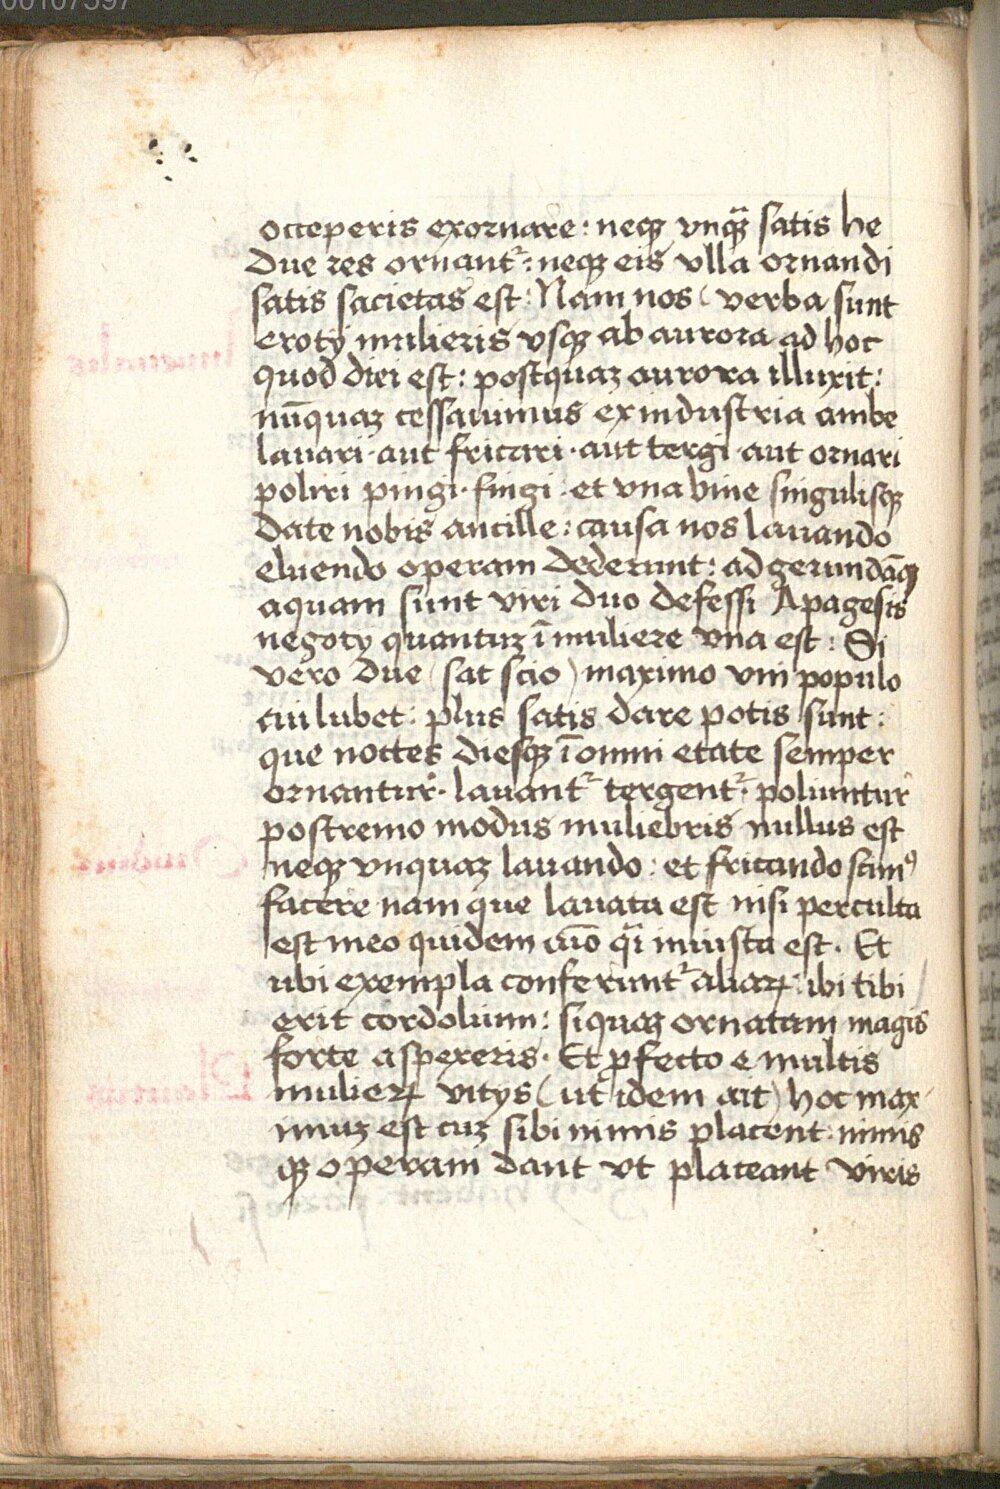 occeperis exornare : neqꝫ vnq̃ꝫ satis he
Due res ornant᷑ : neqꝫ eis vlla ornandi
satis sacietas est : Nam nos ( verba sunt
erotÿ mulieris vsqꝫ ab aurora ad hoc
quod diei est : postquaꝫ aurora illuxit :
nūquaꝫ cessauimus ex industria ambe
lauari · aut fricari · aut tergi · aut ornari
poliri pingi · fingi · et vna bine singulisqꝫ
date nobis ancille : causa nos lauando
eluendo operam dederunt : ad gerundāqꝫ
aquam sunt viri duo defessi Apagesis
negotÿ quantuꝫ ī muliere vna est : Si
vero due ( sat scio ) maximo vni populo
cui lubet : plus satis dare potis sunt :
que noctes diesqꝫ ī omni etate semper
ornantur · lauant᷑ tergent᷑ · poliuntur
postremo modus muliebris nullus est
neqꝫ vnquaꝫ lauando : et fricando scimꝰ
facere nam que lauata est nisi perculta
est meo quidem aīo q̃i inuista est . Et
ubi exempla conferunt᷑ aliaꝝ : ibi tibi
erit cordolium : siquaꝫ ornatam magis
forte aspexeris . Et ꝓfecto e multis
mulieꝝ vitÿs ( ut idem ait ) hoc max
imuꝫ est cuꝫ sibi nimis placent : nimis
qꝫ operam dant vt placeant viris